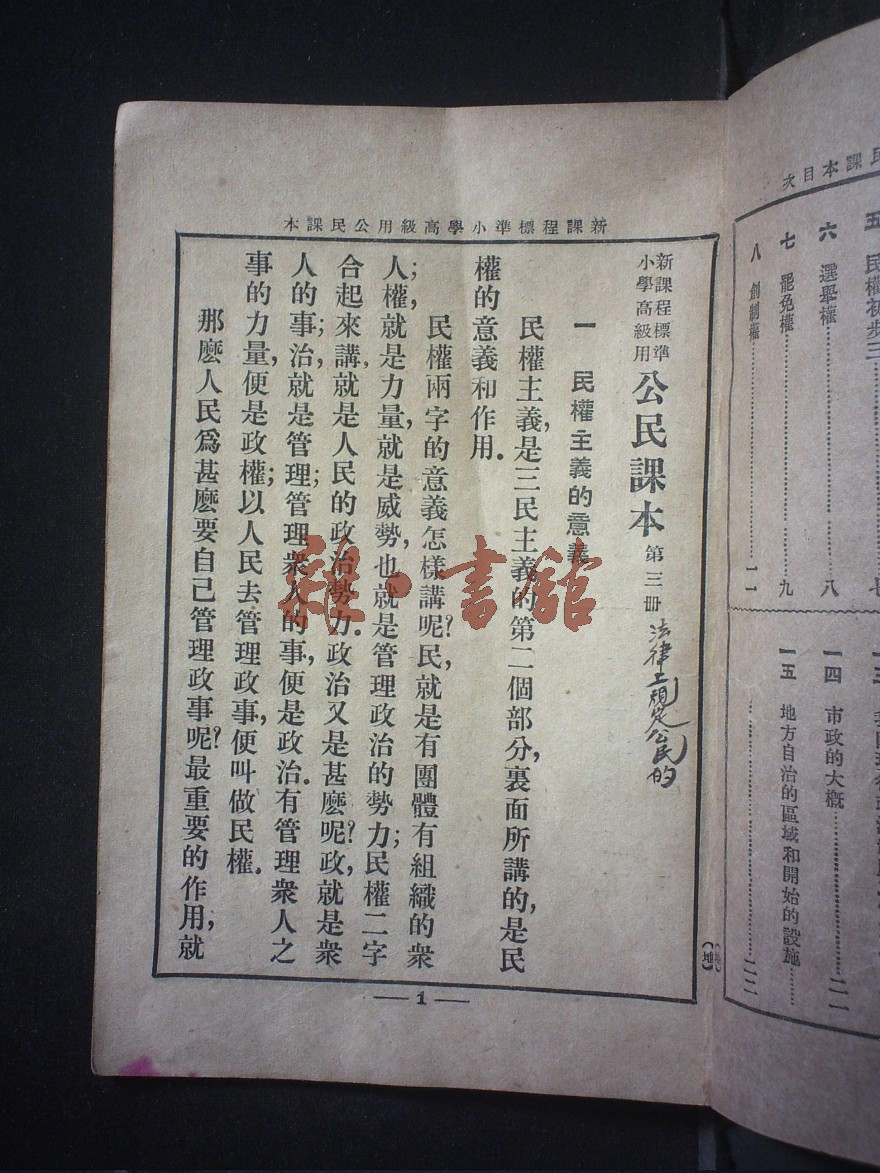 新課程標準小學高級用公民課本
新課程標準
小學高級用
公民課本 第三册
法律上規定公民的
一 民權主義的意義
民權主義,是三民主義的第二個部分,裏面所講的,是民
權的意義和作用.
民權兩字的意義怎樣講呢?民,就是有團體有組織的衆
人;權,就是力量,就是威勢,也就是管理政治的勢力;民權二字
合起來講,就是人民的政治勢力.政治又是甚麽呢?政,就是衆
人的事;治,就是管理;管理衆人的事,便是政治.有管理衆人之
事的力量,便是政權;以人民去管理政事,便叫做民權.
那麽人民爲甚麽要自己管理政事呢?最重要的作用,就
—1—
(地)
民課本目次
五 民權初步三 七
六 選舉權 八
七 罷免權 九
八 創制權 一一
一四 市政的大概 二一
一五 地方自治的區域和開始的設施
二二
雜·書館